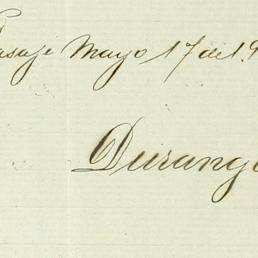 Pasaje Mayo 17 de 19
Durango